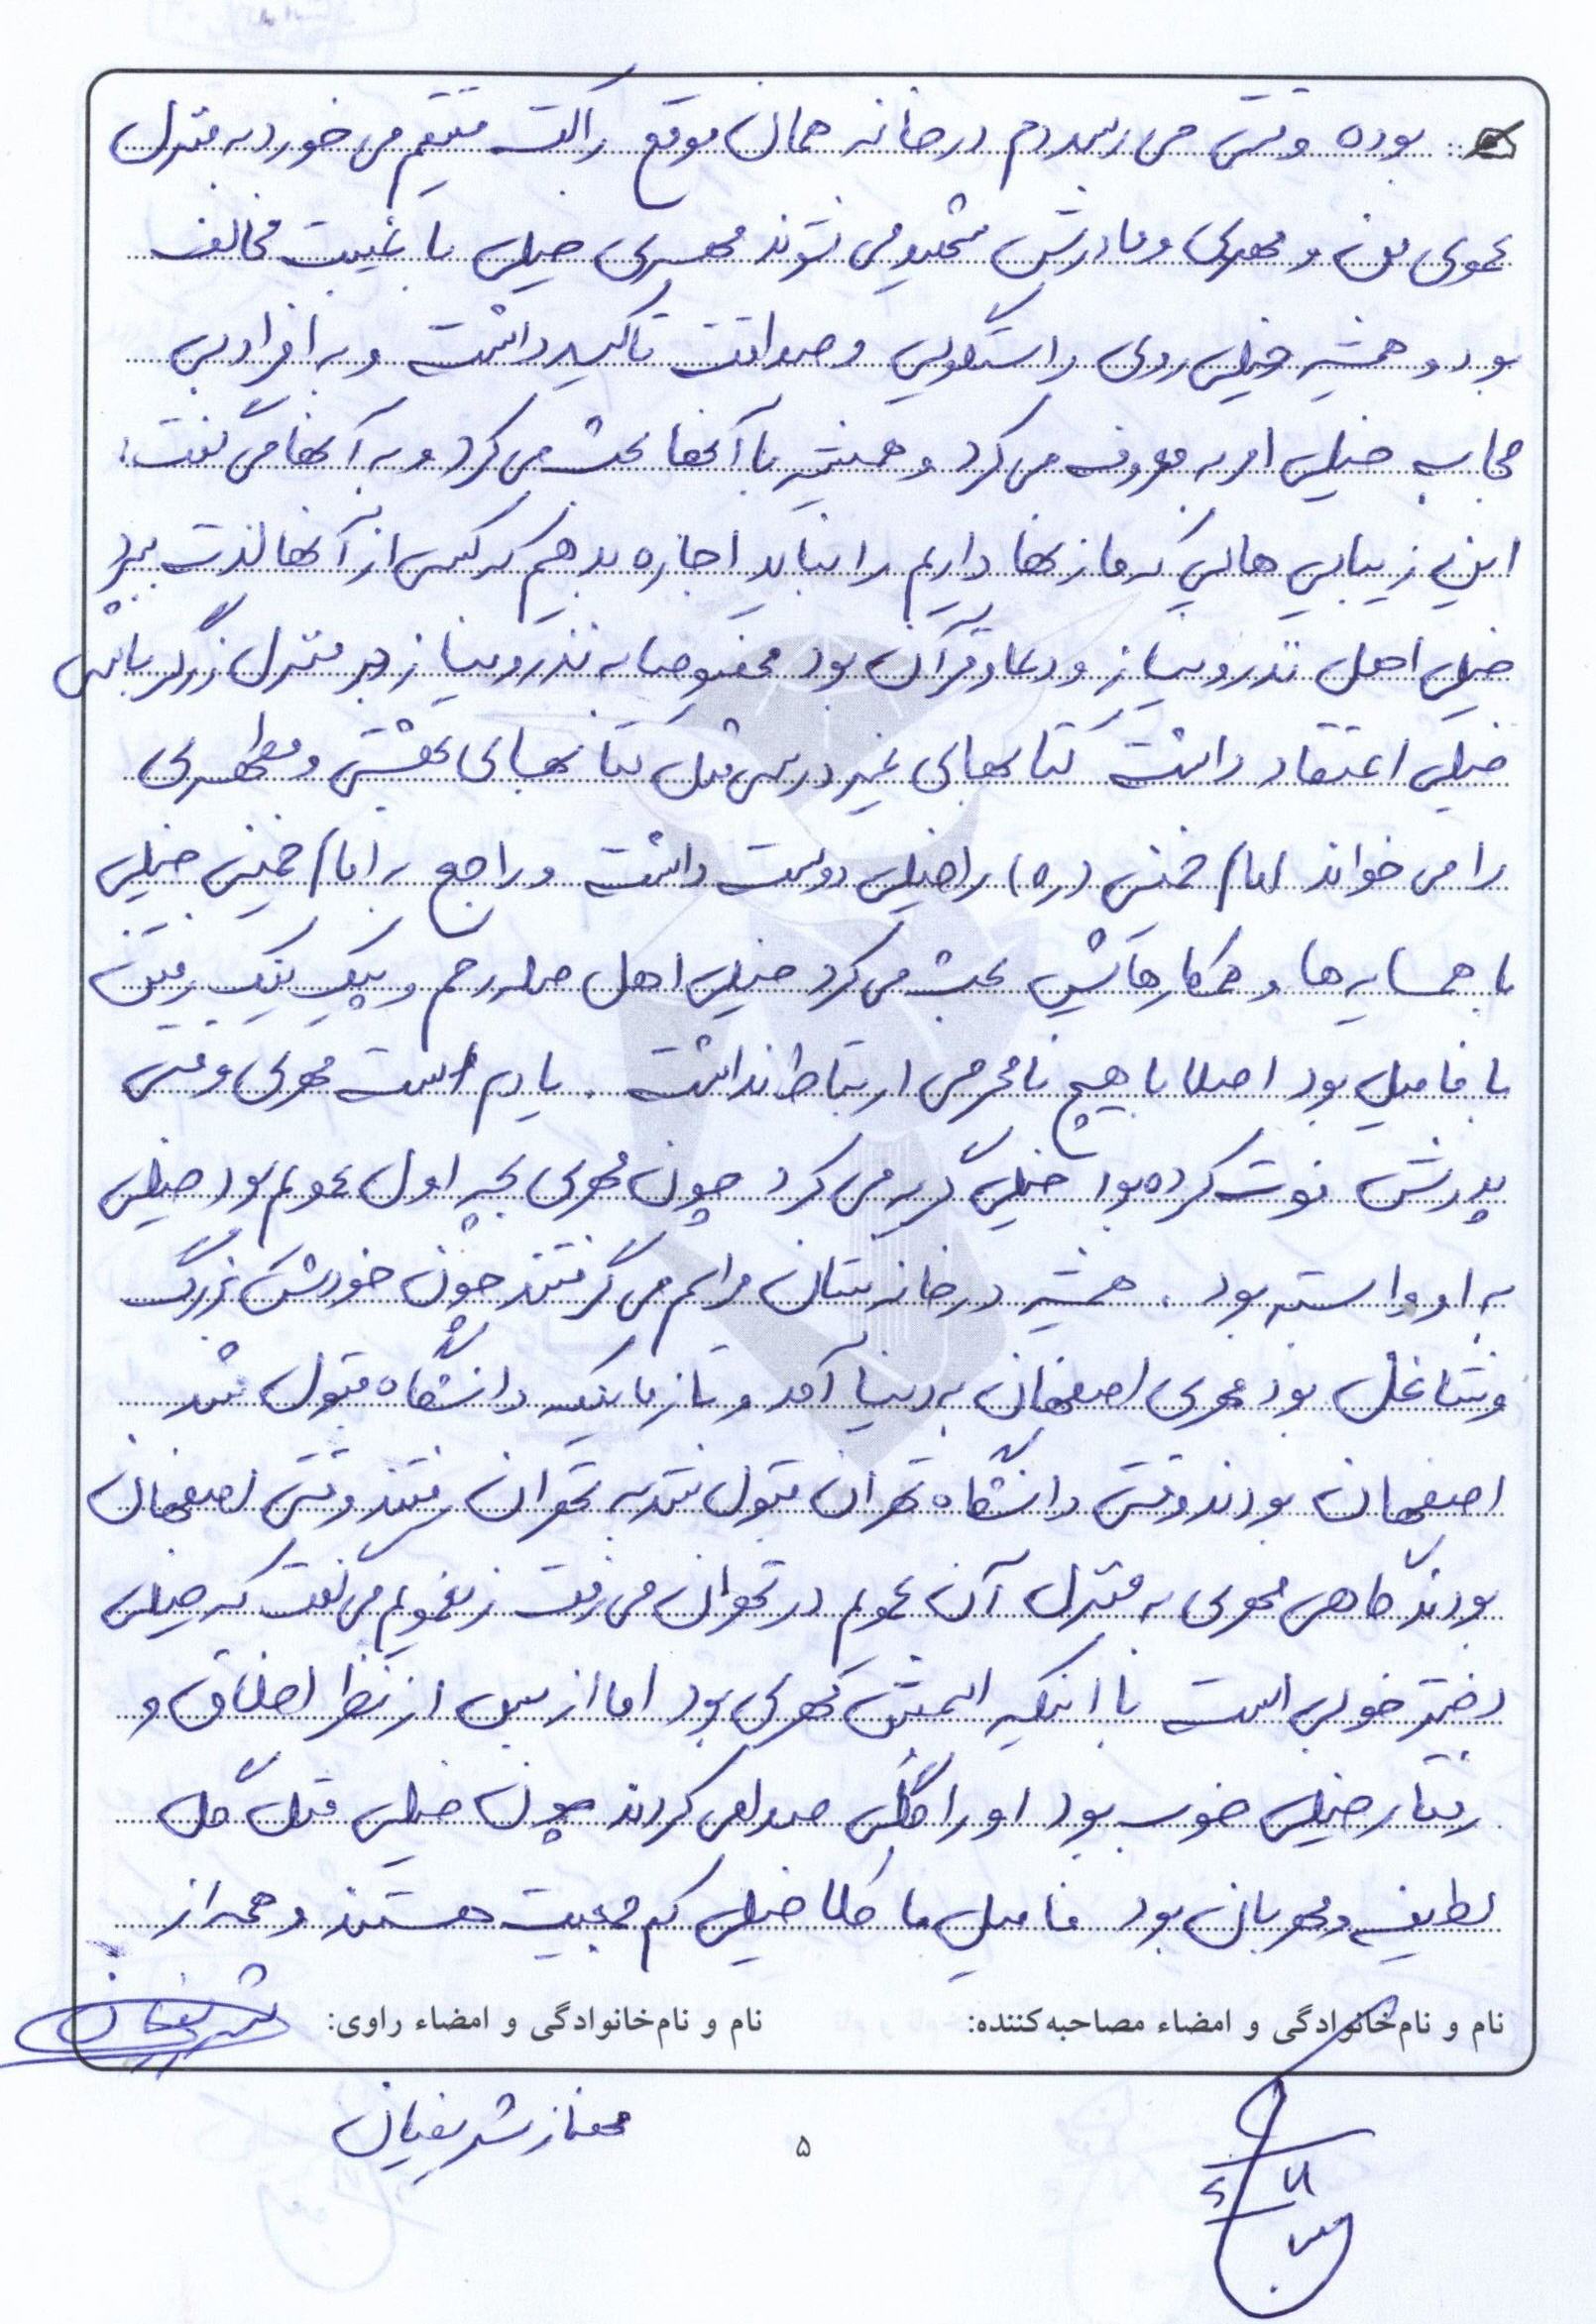 بوده وقتی می رسد دم در خانه همان موقع راکت مستقیم می خورد به منزل
عموی من و مهری و مادرش شهید می شوند مهری خیلی با غیبت مخالف
بود و همیشه خیلی روی راستگویی و صداقت تاکید داشت و به افراد بی
حجاب خیلی امر به معروف می کرد و همیشه با آنها بحث می کرد و به آنها می گفت:
این زیبایی هایی که ما زنها داریم را نباید اجازه بدهیم که کسی از آنها لذت ببرد
خیلی اهل نذر و نیاز و دعا و قرآن بود مخصوصا به نذر و نیاز در منزل زرگرباشی
خیلی اعتقاد داشت کتابهای غیر درسی مثل کتابهای بهشتی و مطهری
را می خواند امام خمینی (ره) را خیلی دوست داشت و راجع به امام خمینی خیلی
با همسایه ها و همکارهایش بحث می کرد خیلی اهل صله رحم و پیک نیک رفتن
با فامیل بود اصلا با هیچ نامحرمی ارتباط نداشت. یادم است مهری وقتی
پدرش فوت کرده بود خیلی گریه می کرد چون مهری بچه اول عمویم بود خیلی
به او وابسته بود. همیشه در خانه شان مراسم می گرفتند چون خودش بزرگ
و شاغل بود مهری اصفهان به دنیا آمد و تا زمانیکه دانشگاه قبول شد
اصفهان بودند وقتی دانشگاه تهران قبول شد به تهران رفتند وقتی اصفهان
بودند گاهی مهری به منزل آن عمویم در تهران می رفت زنعمویم می گفت که خیلی
دختر خوبی است با اینکه اسمش مهری بود اما از بس از نظر اخلاق و
رفتار خیلی خوب بود او را گلی صدا می کردند چون خیلی مثل گل
لطیف و مهربان بود فامیل ما کلا خیلی کم جمعیت هستند و همه از
نام و نام‌خانوادگی و امضاء مصاحبه‌کننده:
نام و نام‌خانوادگی و امضاء راوی:
شریفیان
مهناز شریفیان
۵